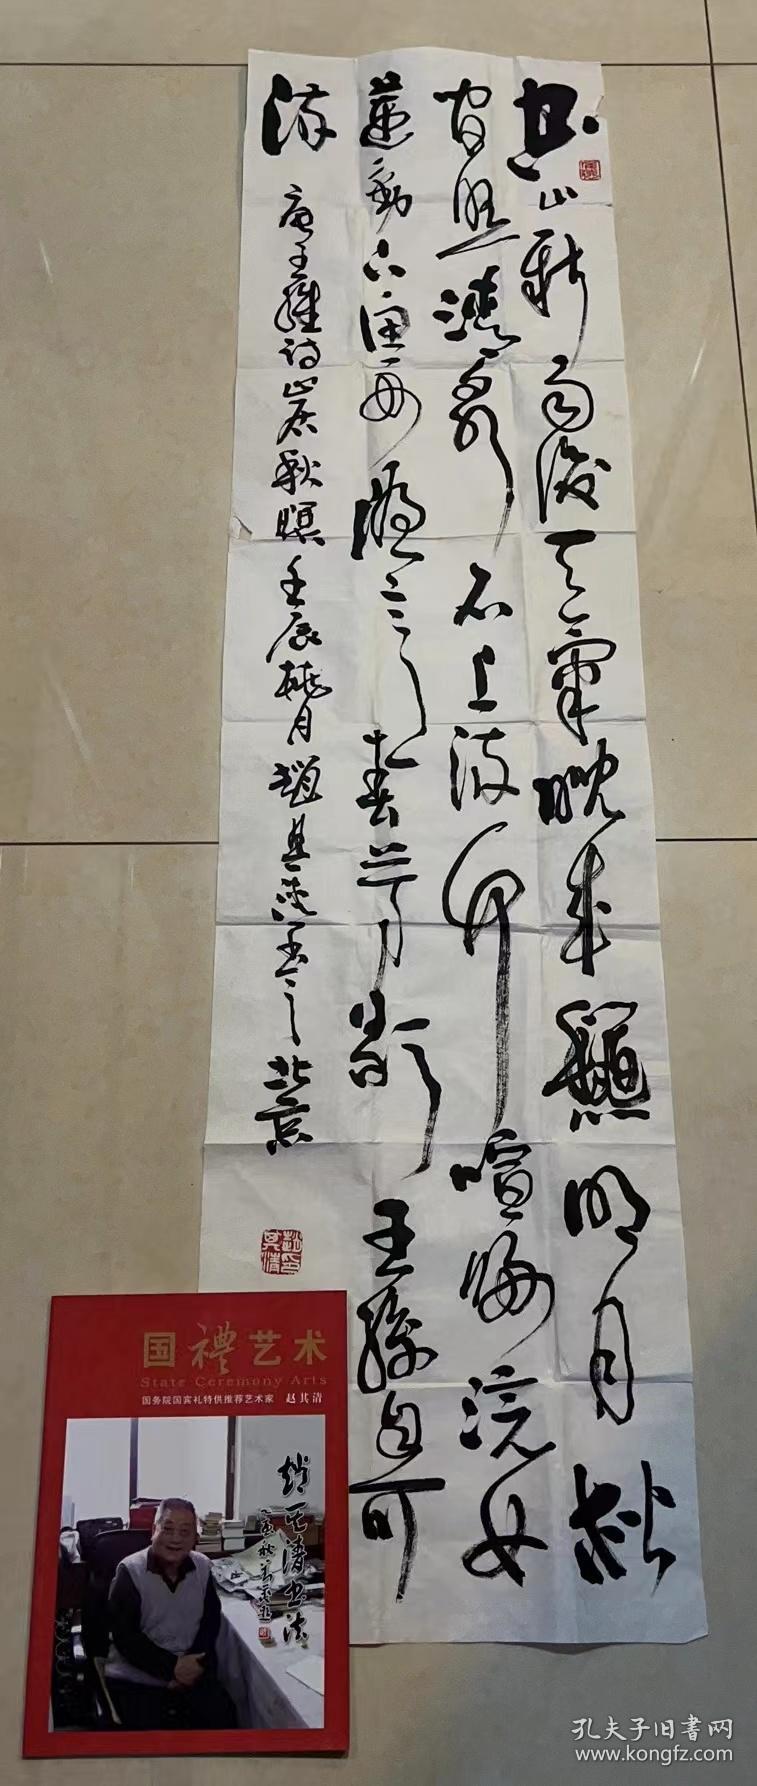 空山新雨後天氣晚來龝明月松
间照清泉石上流竹喧歸浣女
蓮動下漁舟隨意春芳歇王孫自可
留
唐王維詩山居秋暝壬辰桃月趙其清書於北京
国禮艺术
State Ceremony Arts
国务院国宾礼特供推荐艺术家 赵其清
趙其清书法
孔夫子旧書网
www.kongfz.com